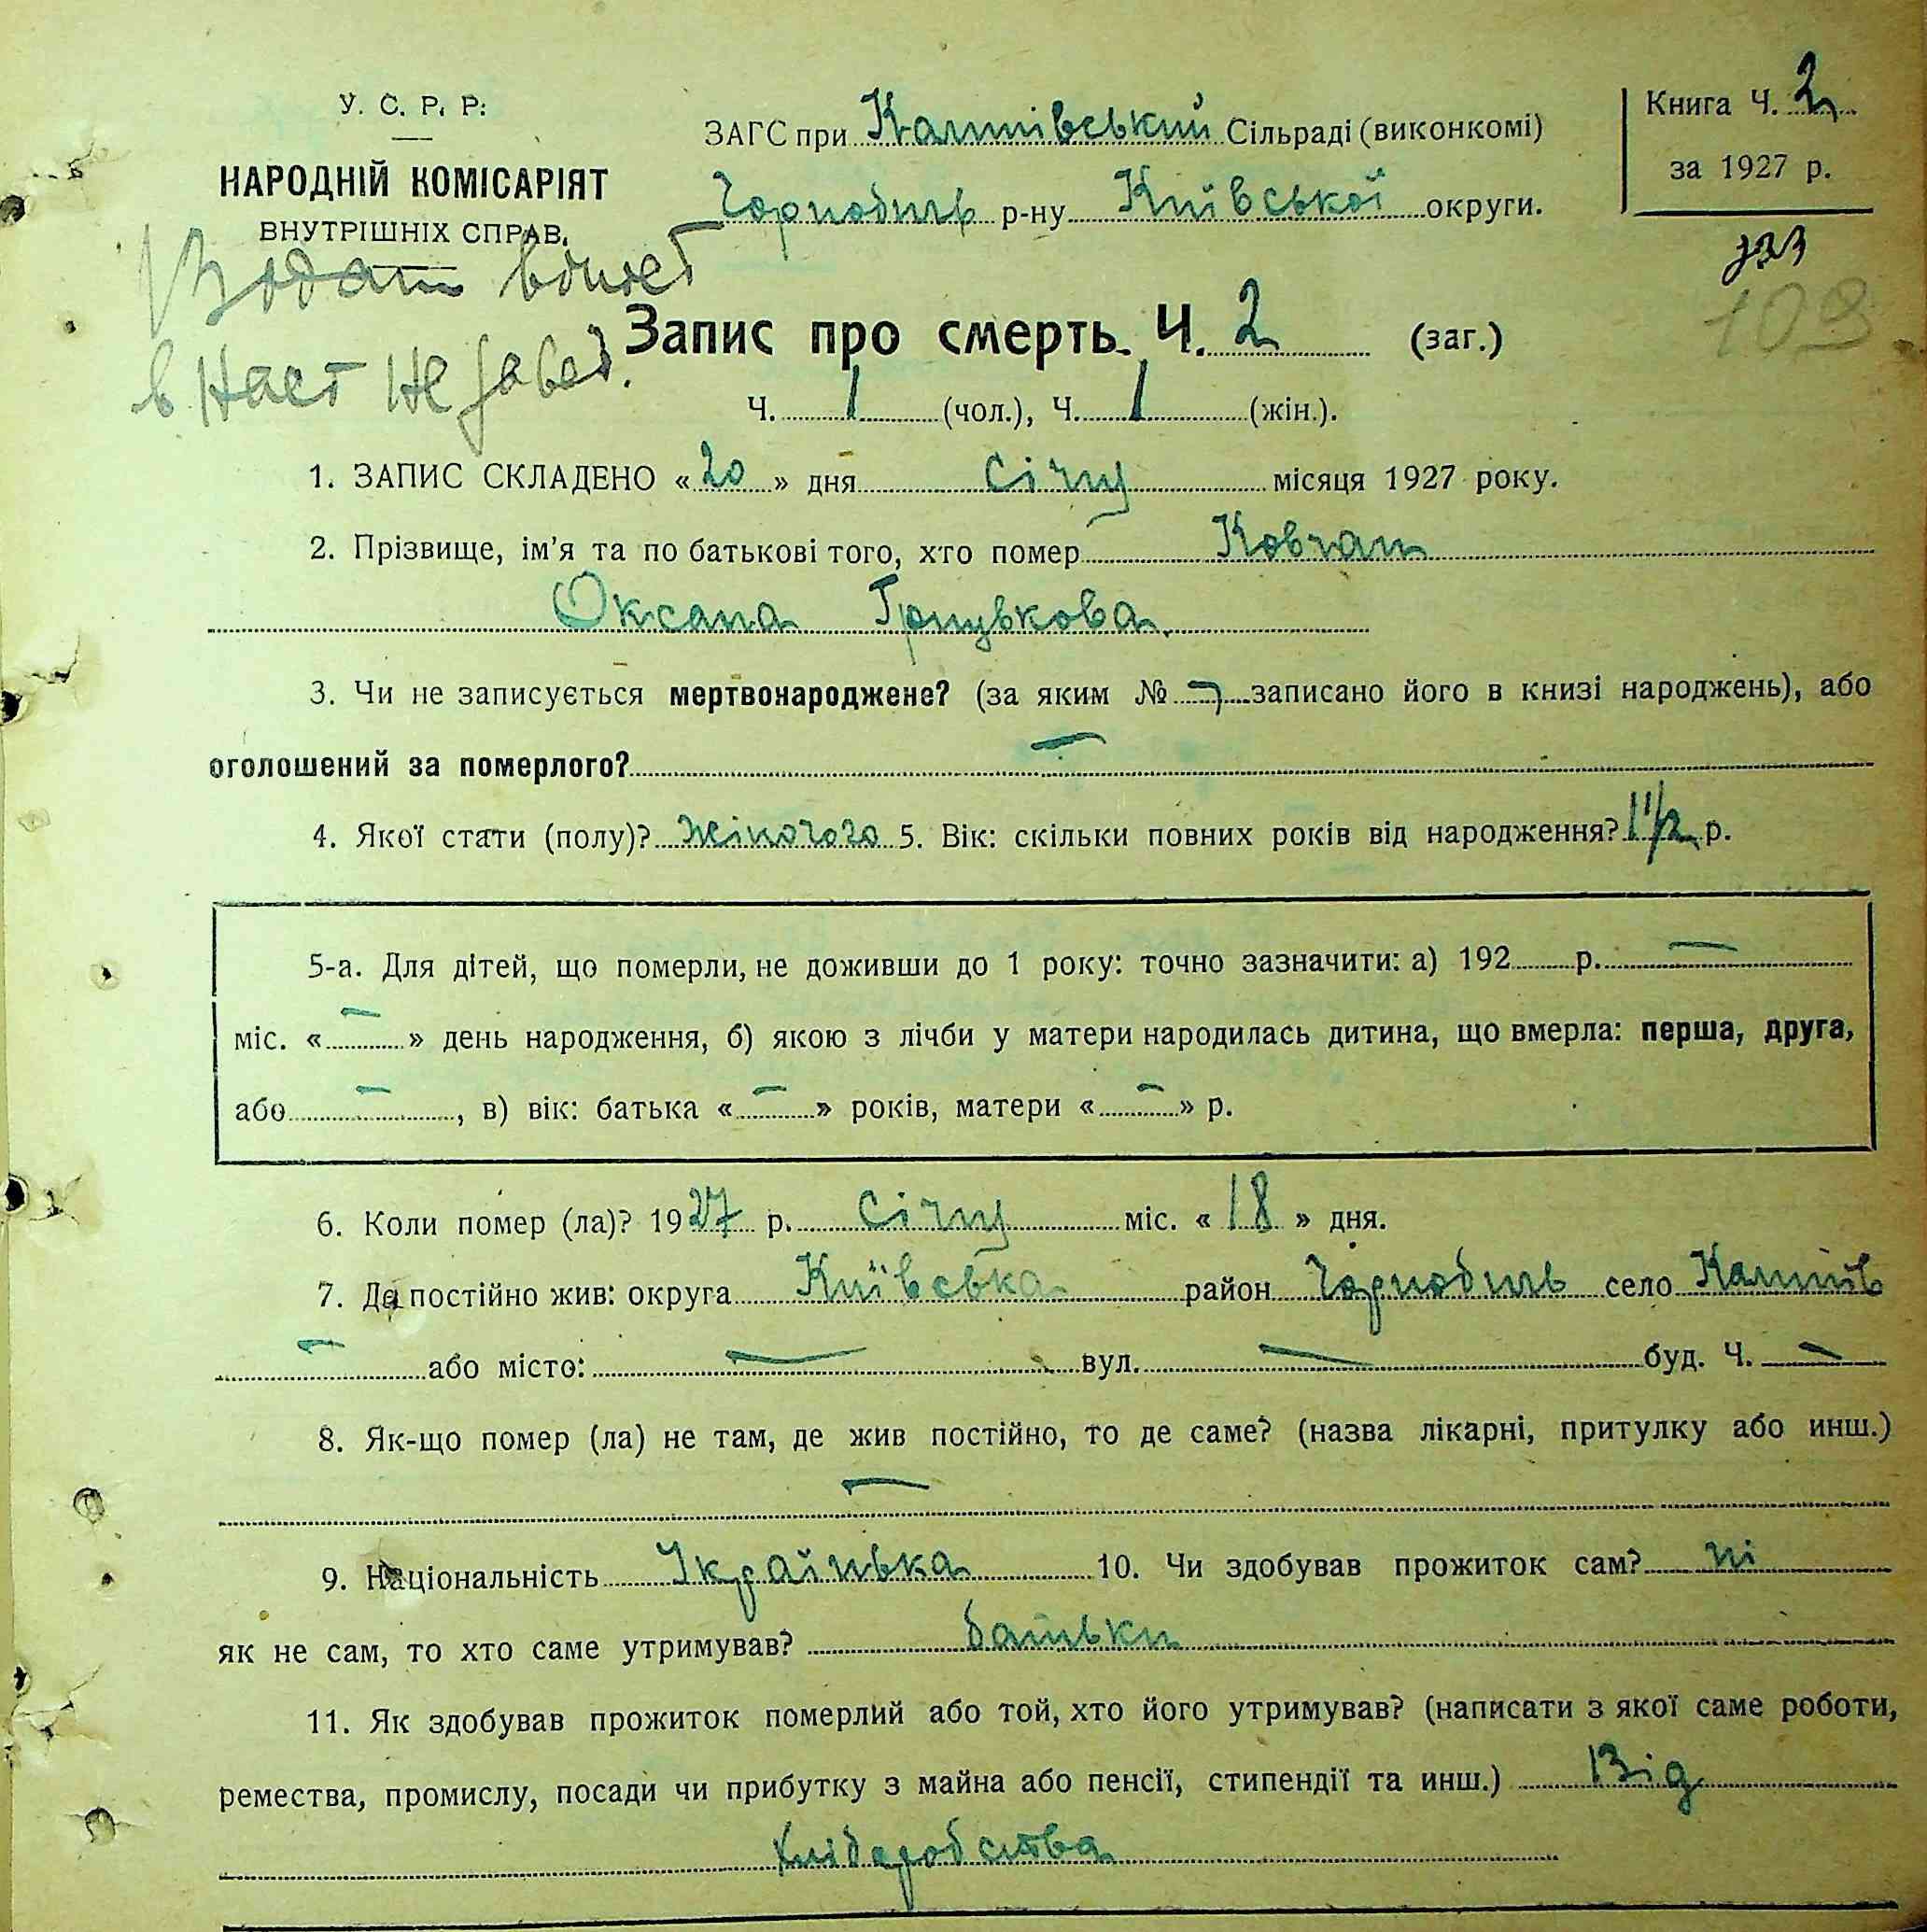 У. С. Р. Р.
НАРОДНІЙ КОМІСАРІЯТ
ВНУТРІШНІХ СПРАВ.
ЗАГС при Сільраді (виконкомі)
Чорнобиль р-ну Київської округи.
Книга Ч. 2
за 1927 р.
109
Запис про смерть. Ч. 2 (заг.)
Ч. 1 (чол.), Ч. 1 (жін.).
1. ЗАПИС СКЛАДЕНО «20» дня Січня місяця 1927 року.
2. Прізвище, ім'я та по батькові того, хто помер Ковган
Оксана
3. Чи не записується мертвонароджене? (за яким № – записано його в книзі народжень), або
оголошений за померлого? –
4. Якої стати (полу)? жіночого 5. Вік: скільки повних років від народження? 1 1/2 р.
5-а. Для дітей, що померли, не доживши до 1 року: точно зазначити: а) 192 р. –
міс. « – » день народження, б) якою з лічби у матери народилась дитина, що вмерла: перша, друга,
або – , в) вік: батька « – » років, матери « – » р.
6. Коли помер (ла)? 1927 р. Січня міс. « 18 » дня.
7. Де постійно жив: округа Київська район Чорнобиль село
– або місто: – вул. – буд. Ч. –
8. Як-що помер (ла) не там, де жив постійно, то де саме? (назва лікарні, притулку або инш.)
–
9. Національність Українька 10. Чи здобував прожиток сам? ні
як не сам, то хто саме утримував? батьки
11. Як здобував прожиток померлий або той, хто його утримував? (написати з якої саме роботи,
ремества, промислу, посади чи прибутку з майна або пенсії, стипендії та инш.) Від
хлібаробства